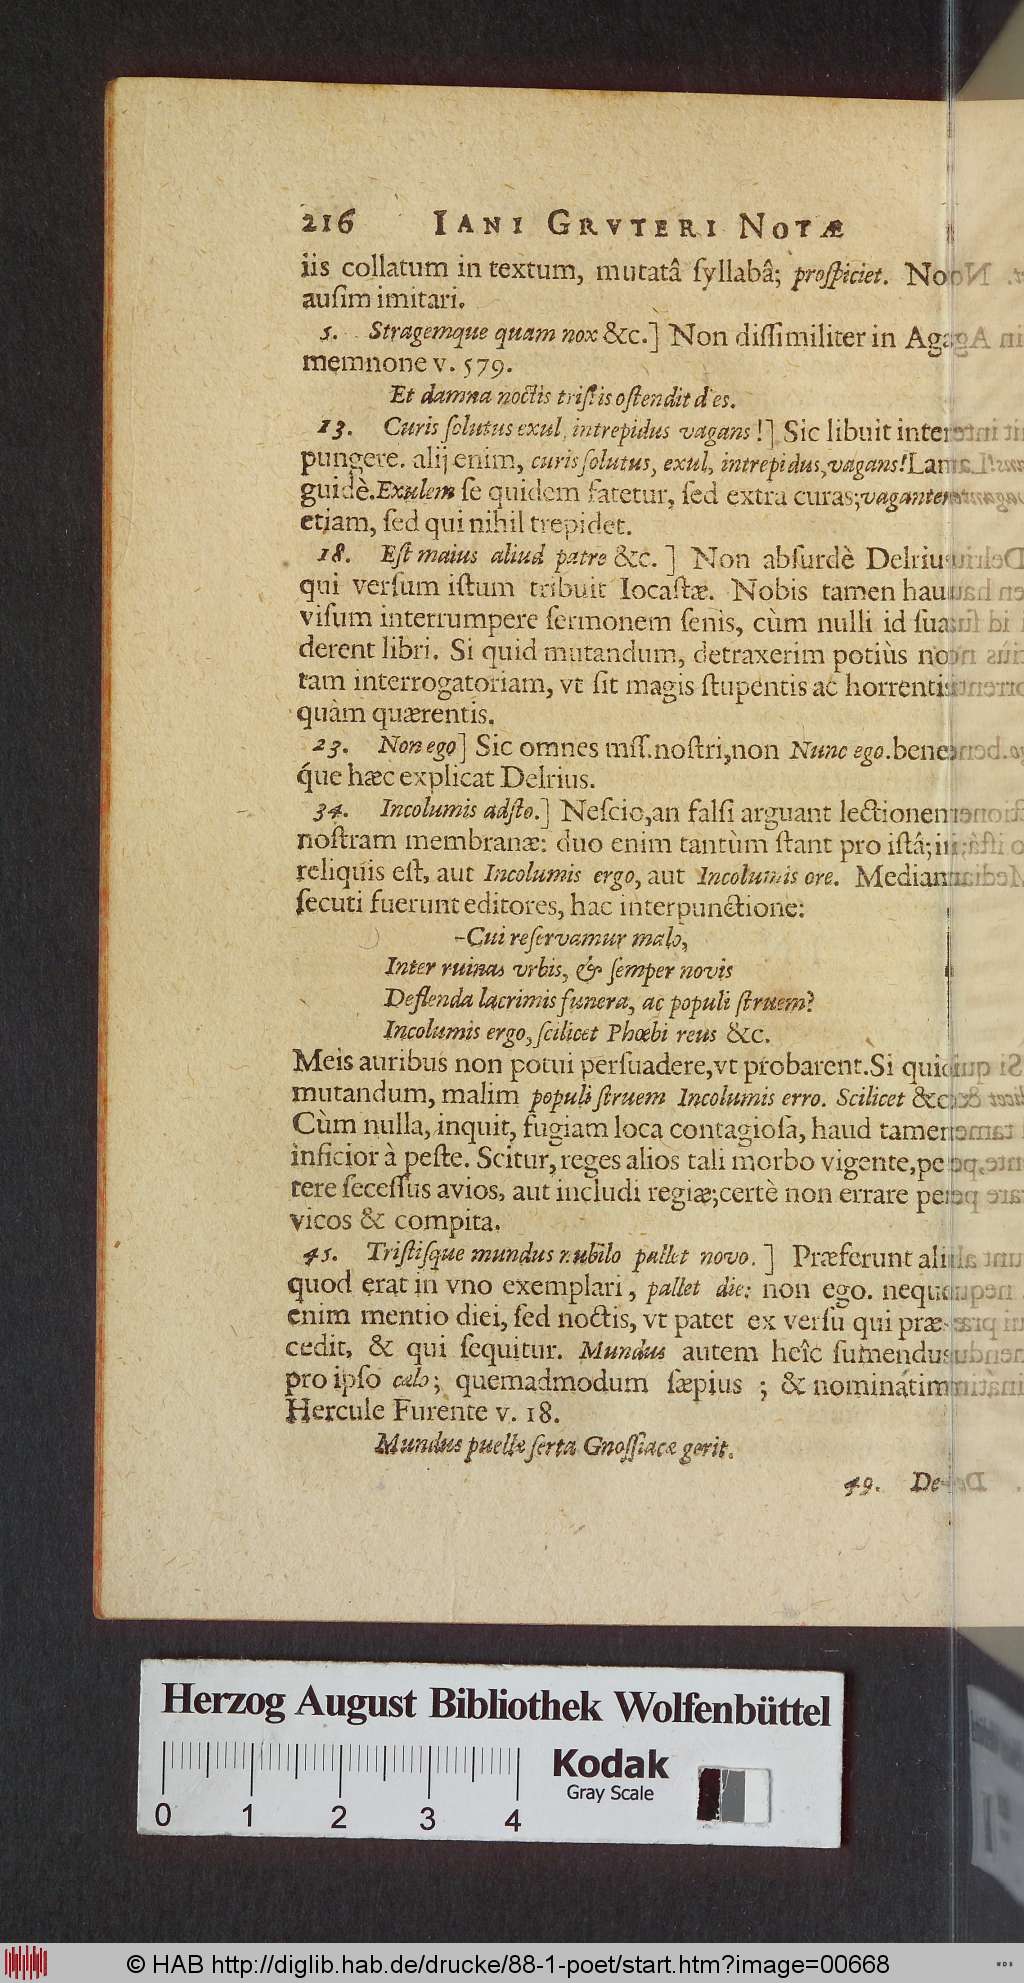 216 IANI GRVTERI NOTÆ
iis collatum in textum, mutatâ ſyllabâ; proſpiciet. Non
auſim imitari.
5. Stragemque quam nox &c.] Non diſſimiliter in Aga-
memnone v. 579.
Et damna noctis triſtis oſtendit dies.
13. Curis ſolutus exul, intrepidus vagans!] Sic libuit inter-
pungere. alij enim, curis ſolutus, exul, intrepidus, vagans! Lan-
guidè. Exulem ſe quidem fatetur, ſed extra curas; vagantem
etiam, ſed qui nihil trepidet.
18. Eſt maius aliud patre &c.] Non abſurdè Delrius
qui verſum iſtum tribuit Iocaſtæ. Nobis tamen haud
viſum interrumpere ſermonem ſenis, cùm nulli id ſua-
derent libri. Si quid mutandum, detraxerim potiùs no-
tam interrogatoriam, vt ſit magis ſtupentis ac horrentis
quàm quærentis.
23. Non ego] Sic omnes mſſ. noſtri, non Nunc ego. bene-
q́ue hæc explicat Delrius.
34. Incolumis adſto.] Neſcio, an falſi arguant lectionem
noſtram membranæ: duo enim tantùm ſtant pro iſtâ; in
reliquis eſt, aut Incolumis ergo, aut Incolumis ore. Mediam
ſecuti fuerunt editores, hac interpunctione:
-Cui reſervamur malo,
Inter ruinas vrbis, & ſemper novis
Deflenda lacrimis funera, ac populi ſtruem?
Incolumis ergo, ſcilicet Phœbi reus &c.
Meis auribus non potui perſuadere, vt probarent. Si quid
mutandum, malim populi ſtruem Incolumis erro. Scilicet &c.
Cùm nulla, inquit, fugiam loca contagioſa, haud tamen
inficior à peſte. Scitur, reges alios tali morbo vigente, pe-
tere ſeceſſus avios, aut includi regiæ; certè non errare per
vicos & compita.
45. Triſtiſque mundus nubilo pallet novo.] Præferunt alii
quod erat in vno exemplari, pallet die: non ego. neque
enim mentio diei, ſed noctis, vt patet ex verſu qui præ-
cedit, & qui ſequitur. Mundus autem heîc ſumendus
pro ipſo cælo; quemadmodum ſæpius; & nominátim
Hercule Furente v. 18.
Mundus puellæ ſerta Gnoſſiacæ gerit.
49. De-
Herzog August Bibliothek Wolfenbüttel
Kodak
Gray Scale
0 1 2 3 4
© HAB http://diglib.hab.de/drucke/88-1-poet/start.htm?image=00668